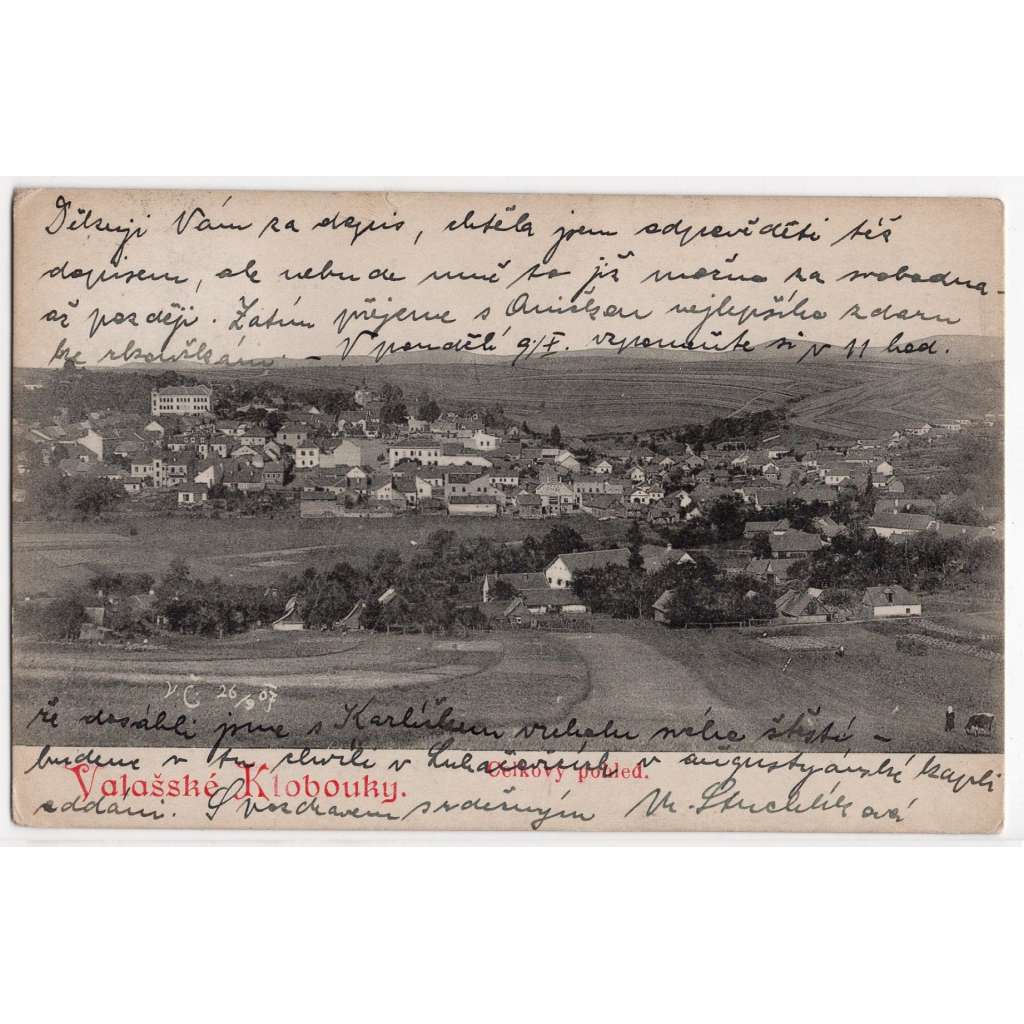 Děkuji Vám za dopis, chtěla jsem odpověděti též
dopisem, ale nebude mně to již možno za svobodna -
až později. Zatím přejeme s Aničkou nejlepšího zdaru
ke zkouškám. - V pondělí 9/X. vzpomeňte si v 11 hod.
V Č 26/9 07
že dosáhli jsme s Karlíčkem vrcholu něho štěstí -
budeme v tu chvíli v Luhačovicích v augustyánské kapli
Valašské Klobouky. Celkový pohled.
oddáni. S pozdravem srdečným M.